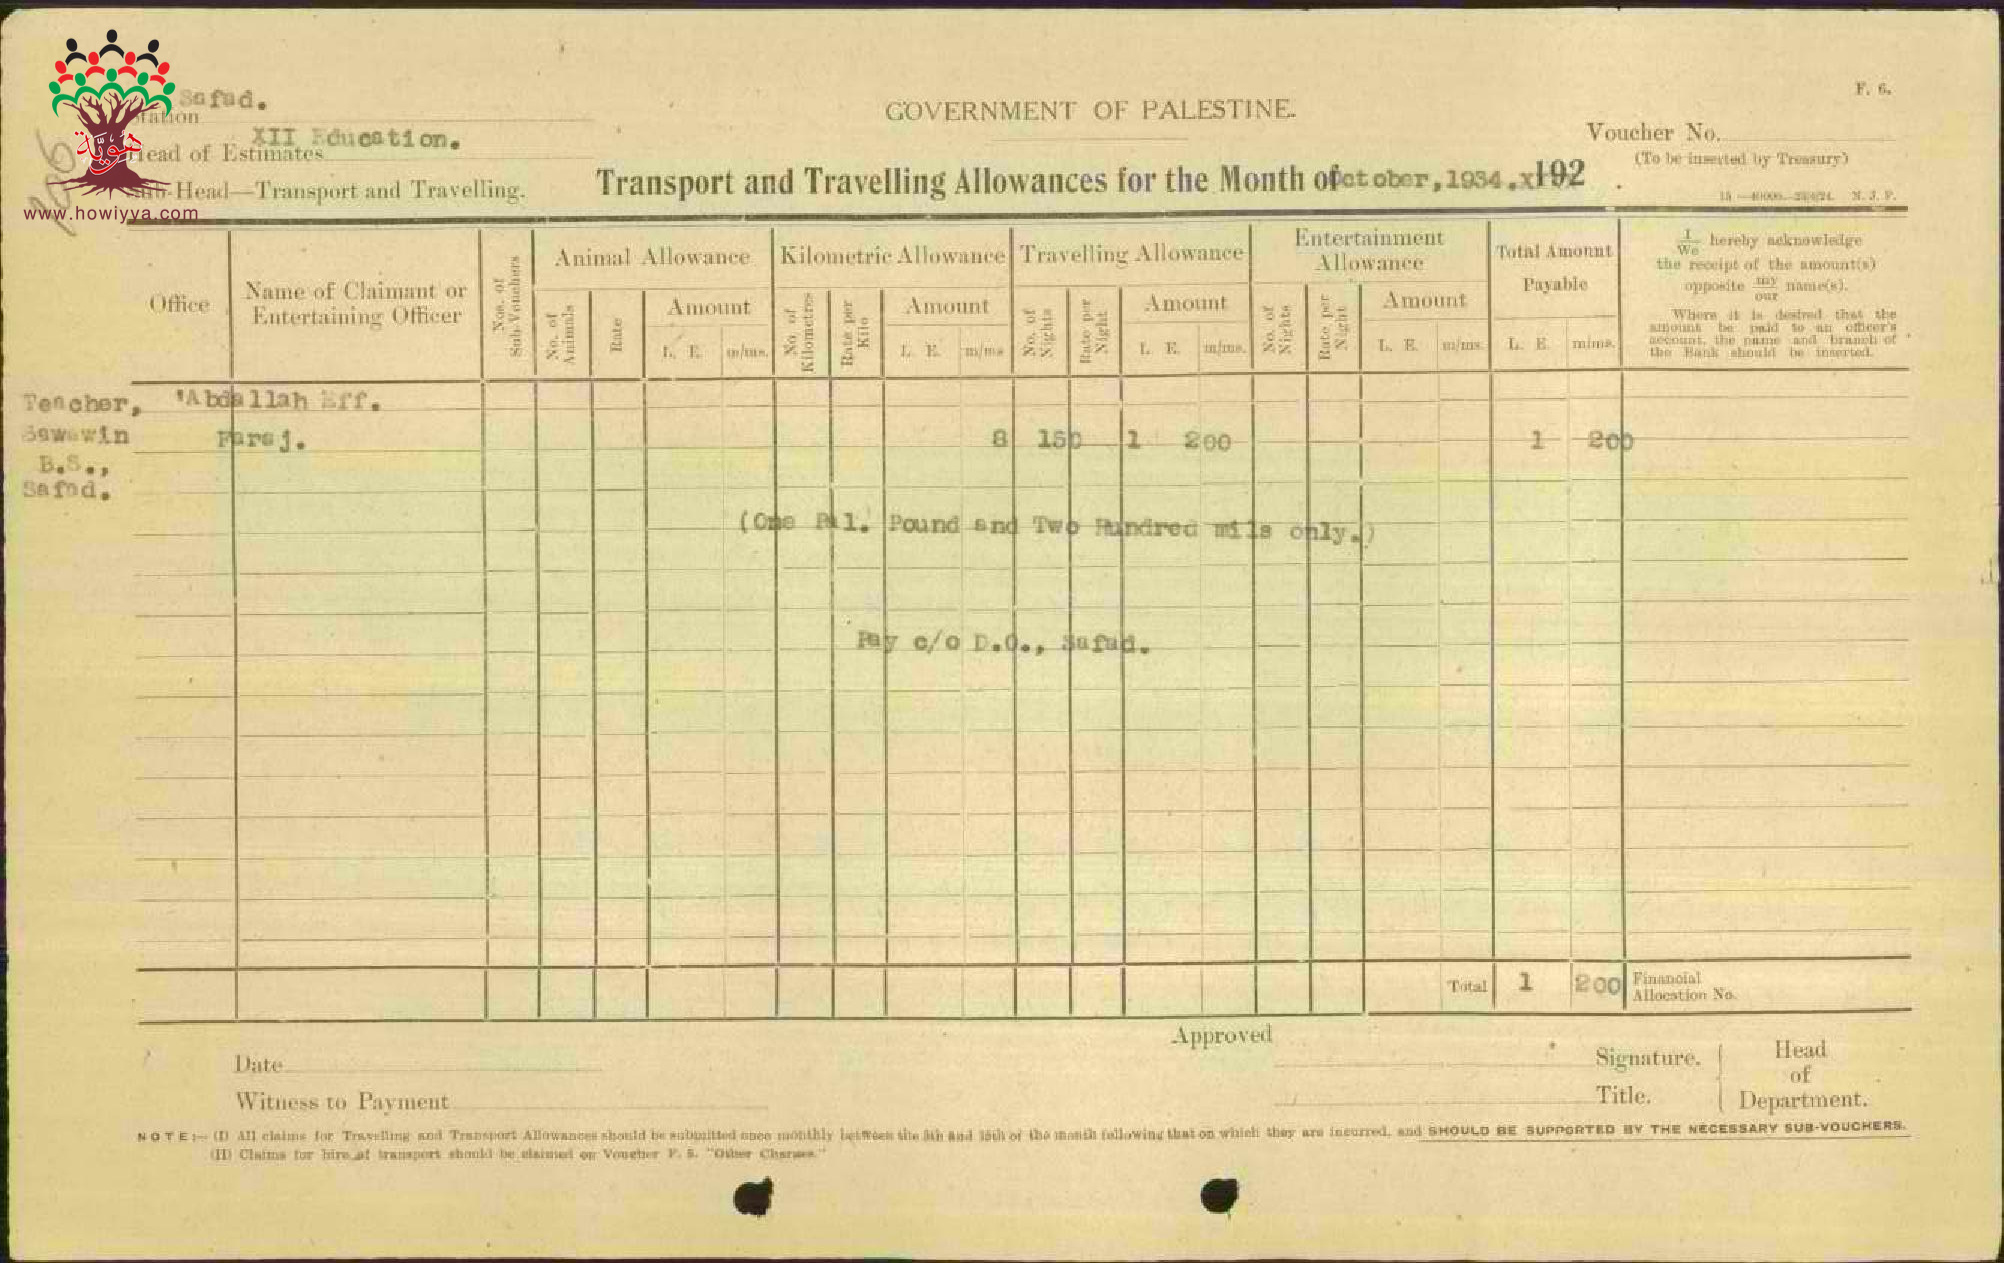 F. 6.
Safad.
Station
GOVERNMENT OF PALESTINE.
Voucher No.
XII Education.
Head of Estimates
(To be inserted by Treasury)
Sub-Head—Transport and Travelling.
Transport and Travelling Allowances for the Month of October, 1934. x192 .
N. J. P.
هويّة
www.howiyya.com
Office
Name of Claimant or Entertaining Officer
Nos. of Sub-Vouchers
Animal Allowance
No. of Animals
Rate
Amount
L. E. m/ms.
Kilometric Allowance
No. of Kilometres
Rate per Kilo
Amount
L. E. m/ms
Travelling Allowance
No. of Nights
Rate per Night
Amount
L. E. m/ms.
Entertainment Allowance
No. of Nights
Rate per Night
Amount
L. E. m/ms.
Total Amount Payable
L. E. m/ms.
I/We hereby acknowledge
the receipt of the amount(s)
opposite my/our name(s).
Where it is desired that the
amount be paid to an officer's
account, the name and branch of
the Bank should be inserted.
Teacher, 'Abdallah Eff.
Sawawin Faraj. 8 150 1 200 1 200
B.S.,
Safad.
(One Pal. Pound and Two Hundred mils only.)
Pay c/o D.O., Safad.
Total 1 200 Financial
Allocation No.
Approved
Date
Signature.
Head
of
Department.
Witness to Payment
Title.
NOTE:— (I) All claims for Travelling and Transport Allowances should be submitted once monthly between the 5th and 15th of the month following that on which they are incurred, and SHOULD BE SUPPORTED BY THE NECESSARY SUB-VOUCHERS.
(II) Claims for hire of transport should be claimed on Voucher F. 5. "Other Charges."